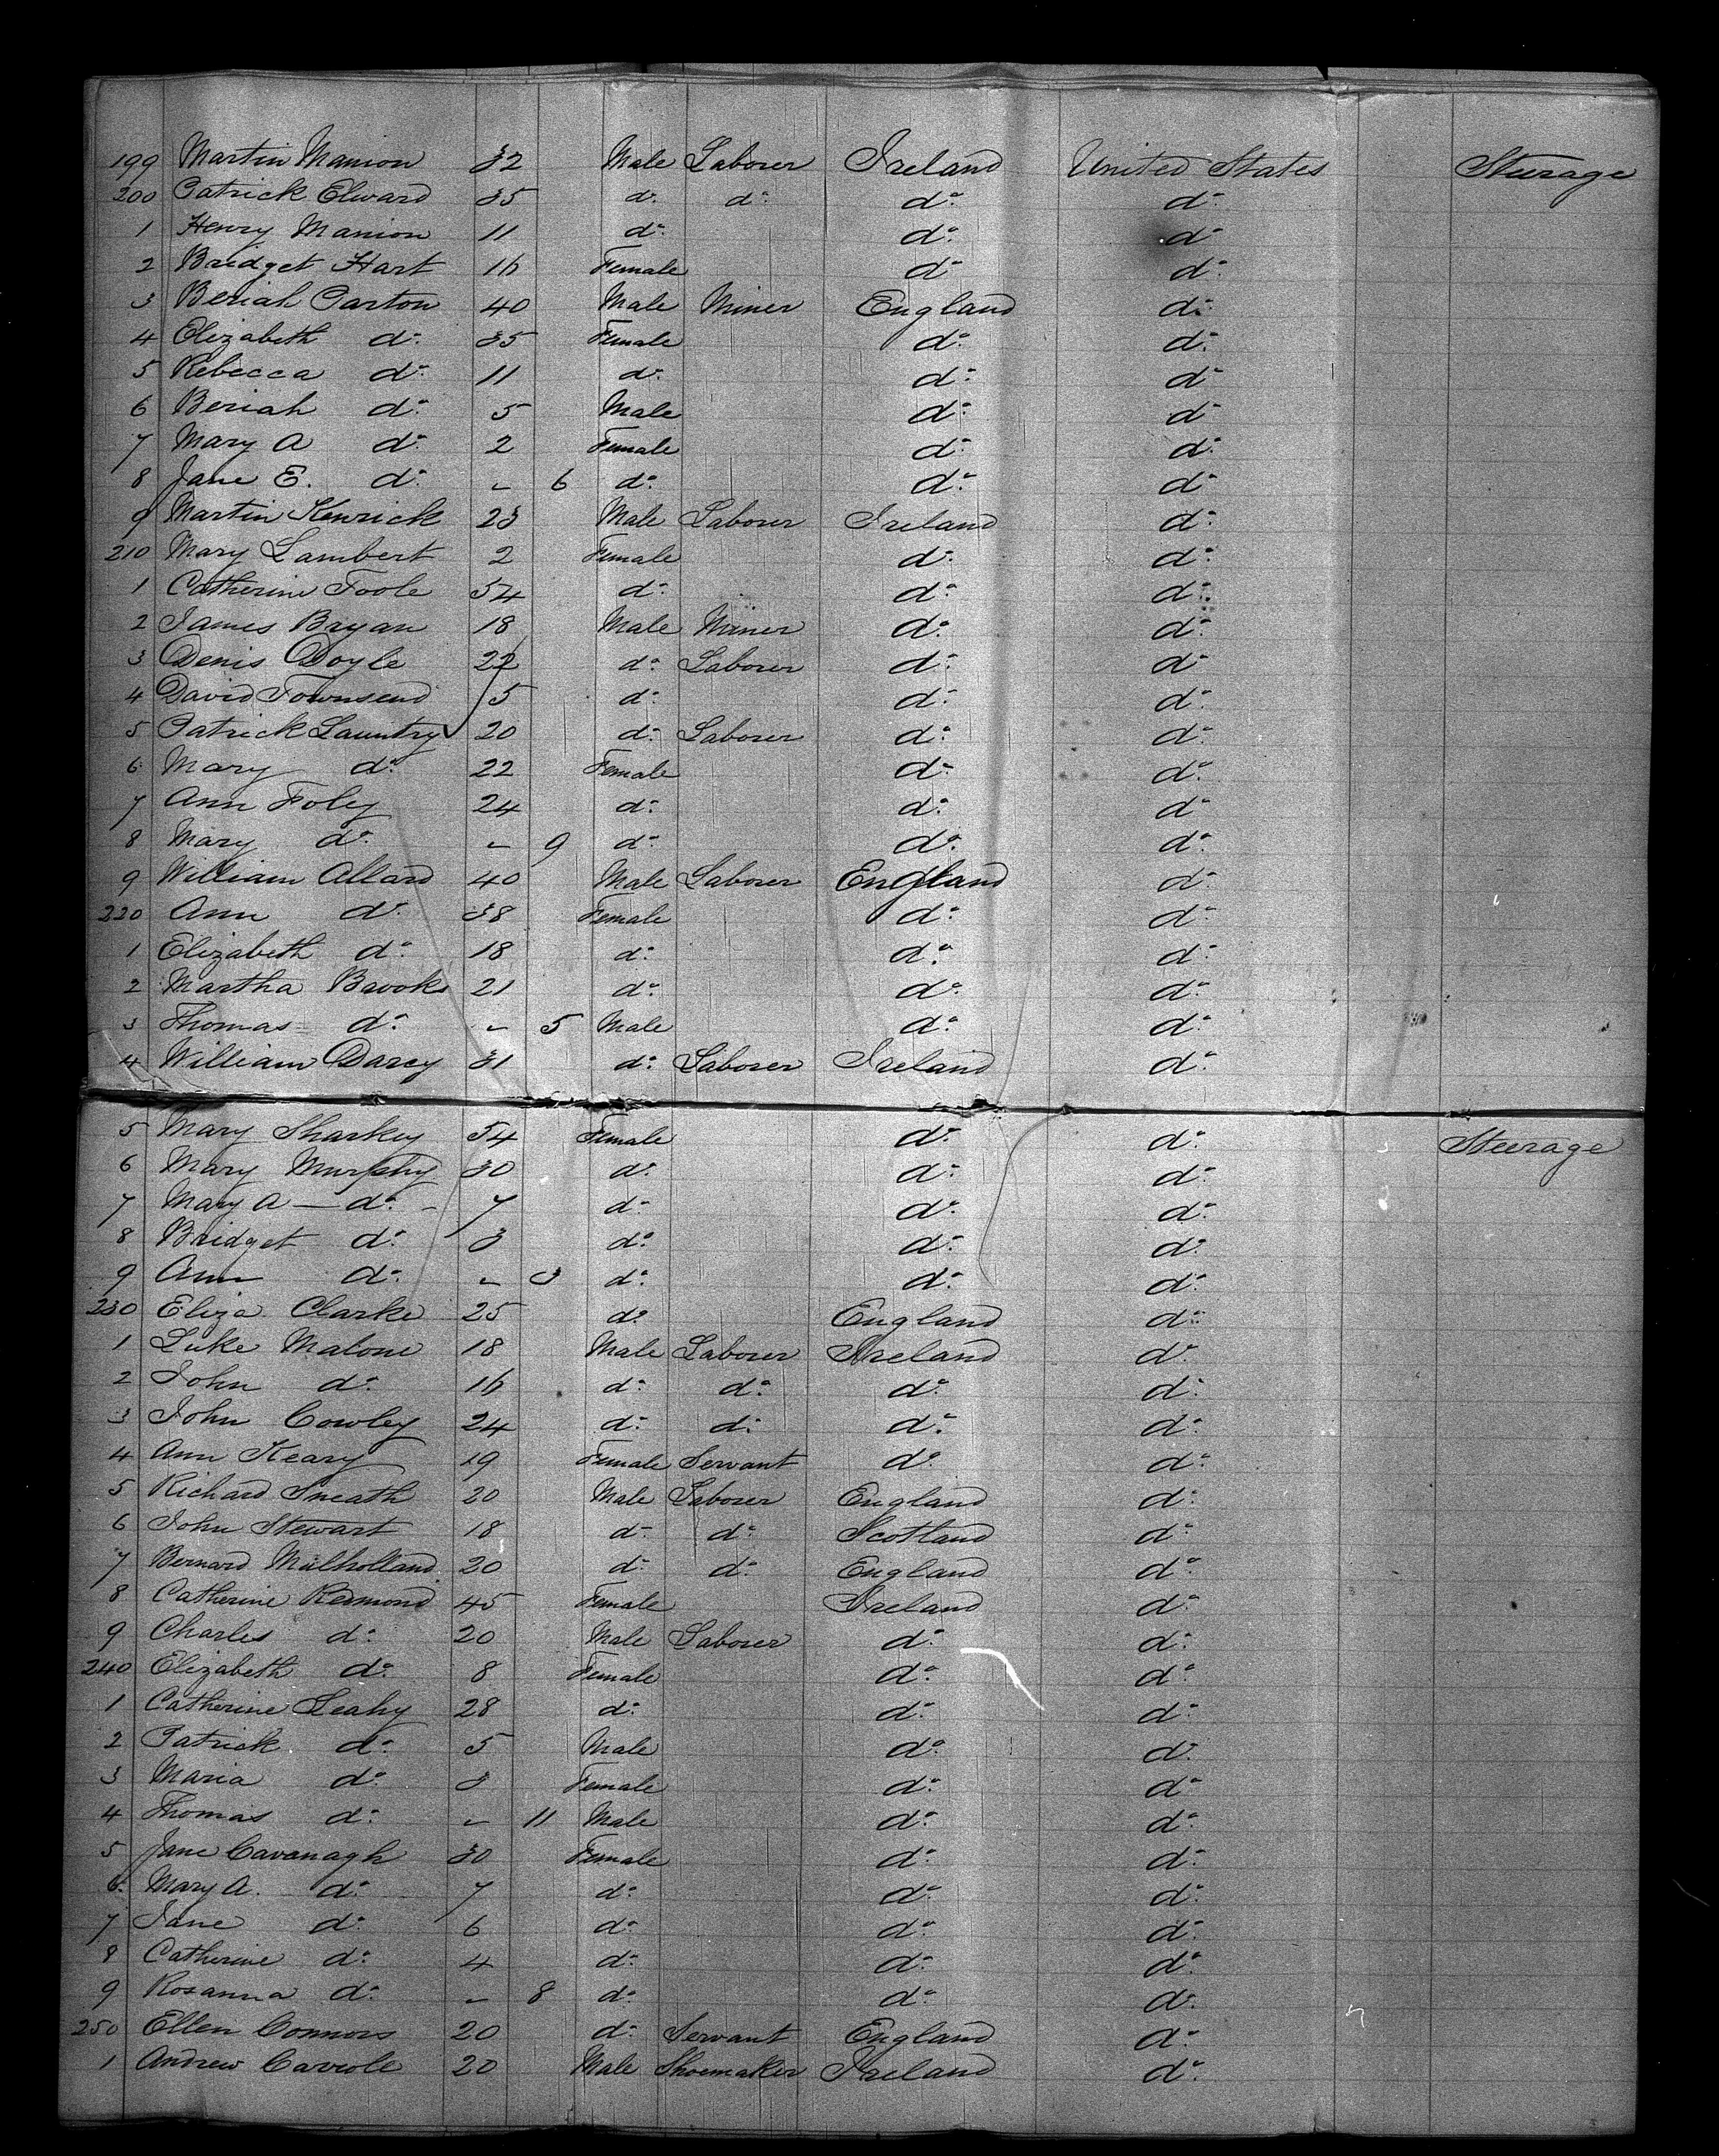 199 Martin Manion 32 Male Laborer Ireland United States Steerage
200 Patrick Elward 35 do do do do
1 Henry Manion 11 do do do
2 Bridget Hart 16 Female do do
3 Beriah Parton 40 Male Miner England do
4 Elizabeth do 35 Female do do
5 Rebecca do 11 do do do
6 Beriah do 5 Male do do
7 Mary A do 2 Female do do
8 Jane E. do - 6 do do do
9 Martin Kenrick 23 Male Laborer Ireland do
210 Mary Lambert 2 Female do do
1 Catherine Toole 54 do do do
2 James Bryan 18 Male Miner do do
3 Denis Doyle 22 do Laborer do do
4 David Townsend 5 do do do
5 Patrick Launtry 20 do Laborer do do
6 Mary do 22 Female do do
7 Ann Foley 24 do do do
8 Mary do - 9 do do do
9 William Allard 40 Male Laborer England do
220 Ann do 38 Female do do
1 Elizabeth do 18 do do do
2 Martha Brooks 21 do do do
3 Thomas do - 5 Male do do
4 William Darcy 31 do Laborer Ireland do
5 Mary Sharkey 54 Female do do Steerage
6 Mary Murphy 30 do do do
7 Mary A — do - 7 do do do
8 Bridget do 3 do do do
9 Ann do - 3 do do do
230 Eliza Clarke 25 do England do
1 Luke Malone 18 Male Laborer Ireland do
2 John do 16 do do do do
3 John Cowley 24 do do do do
4 Ann Keary 19 Female Servant do do
5 Richard Sneath 20 Male Laborer England do
6 John Stewart 18 do do Scotland do
7 Bernard Mulholland 20 do do England do
8 Catherine Redmond 45 Female Ireland do
9 Charles do 20 Male Laborer do do
240 Elizabeth do 8 Female do do
1 Catherine Leahy 28 do do do
2 Patrick do 5 Male do do
3 Maria do 3 Female do do
4 Thomas do - 11 Male do do
5 Jane Cavanagh 30 Female do do
6 Mary A. do 7 do do do
7 Jane do 6 do do do
8 Catherine do 4 do do do
9 Rosanna do - 8 do do do
250 Ellen Connors 20 do Servant England do
1 Andrew Carrole 20 Male Shoemaker Ireland do